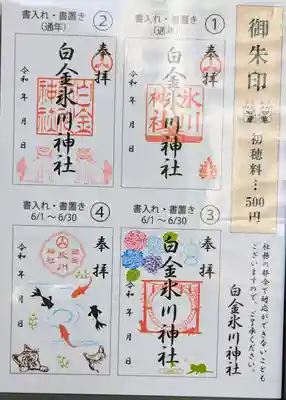 御朱印
初穂料…500円
社務の都合で対応ができないことも
ございますので、ご了承ください。
白金氷川神社
①
書入れ・書置き
(通年)
奉拝
氷川
神社
白金氷川神社
令和 年 月 日
②
書入れ・書置き
(通年)
奉拝
白金
神社
白金氷川神社
令和 年 月 日
③
書入れ・書置き
6/1～6/30
奉拝
白金氷川神社
令和 年 月 日
④
書入れ・書置き
6/1～6/30
奉拝
白金
氷川
神社
令和 年 月 日